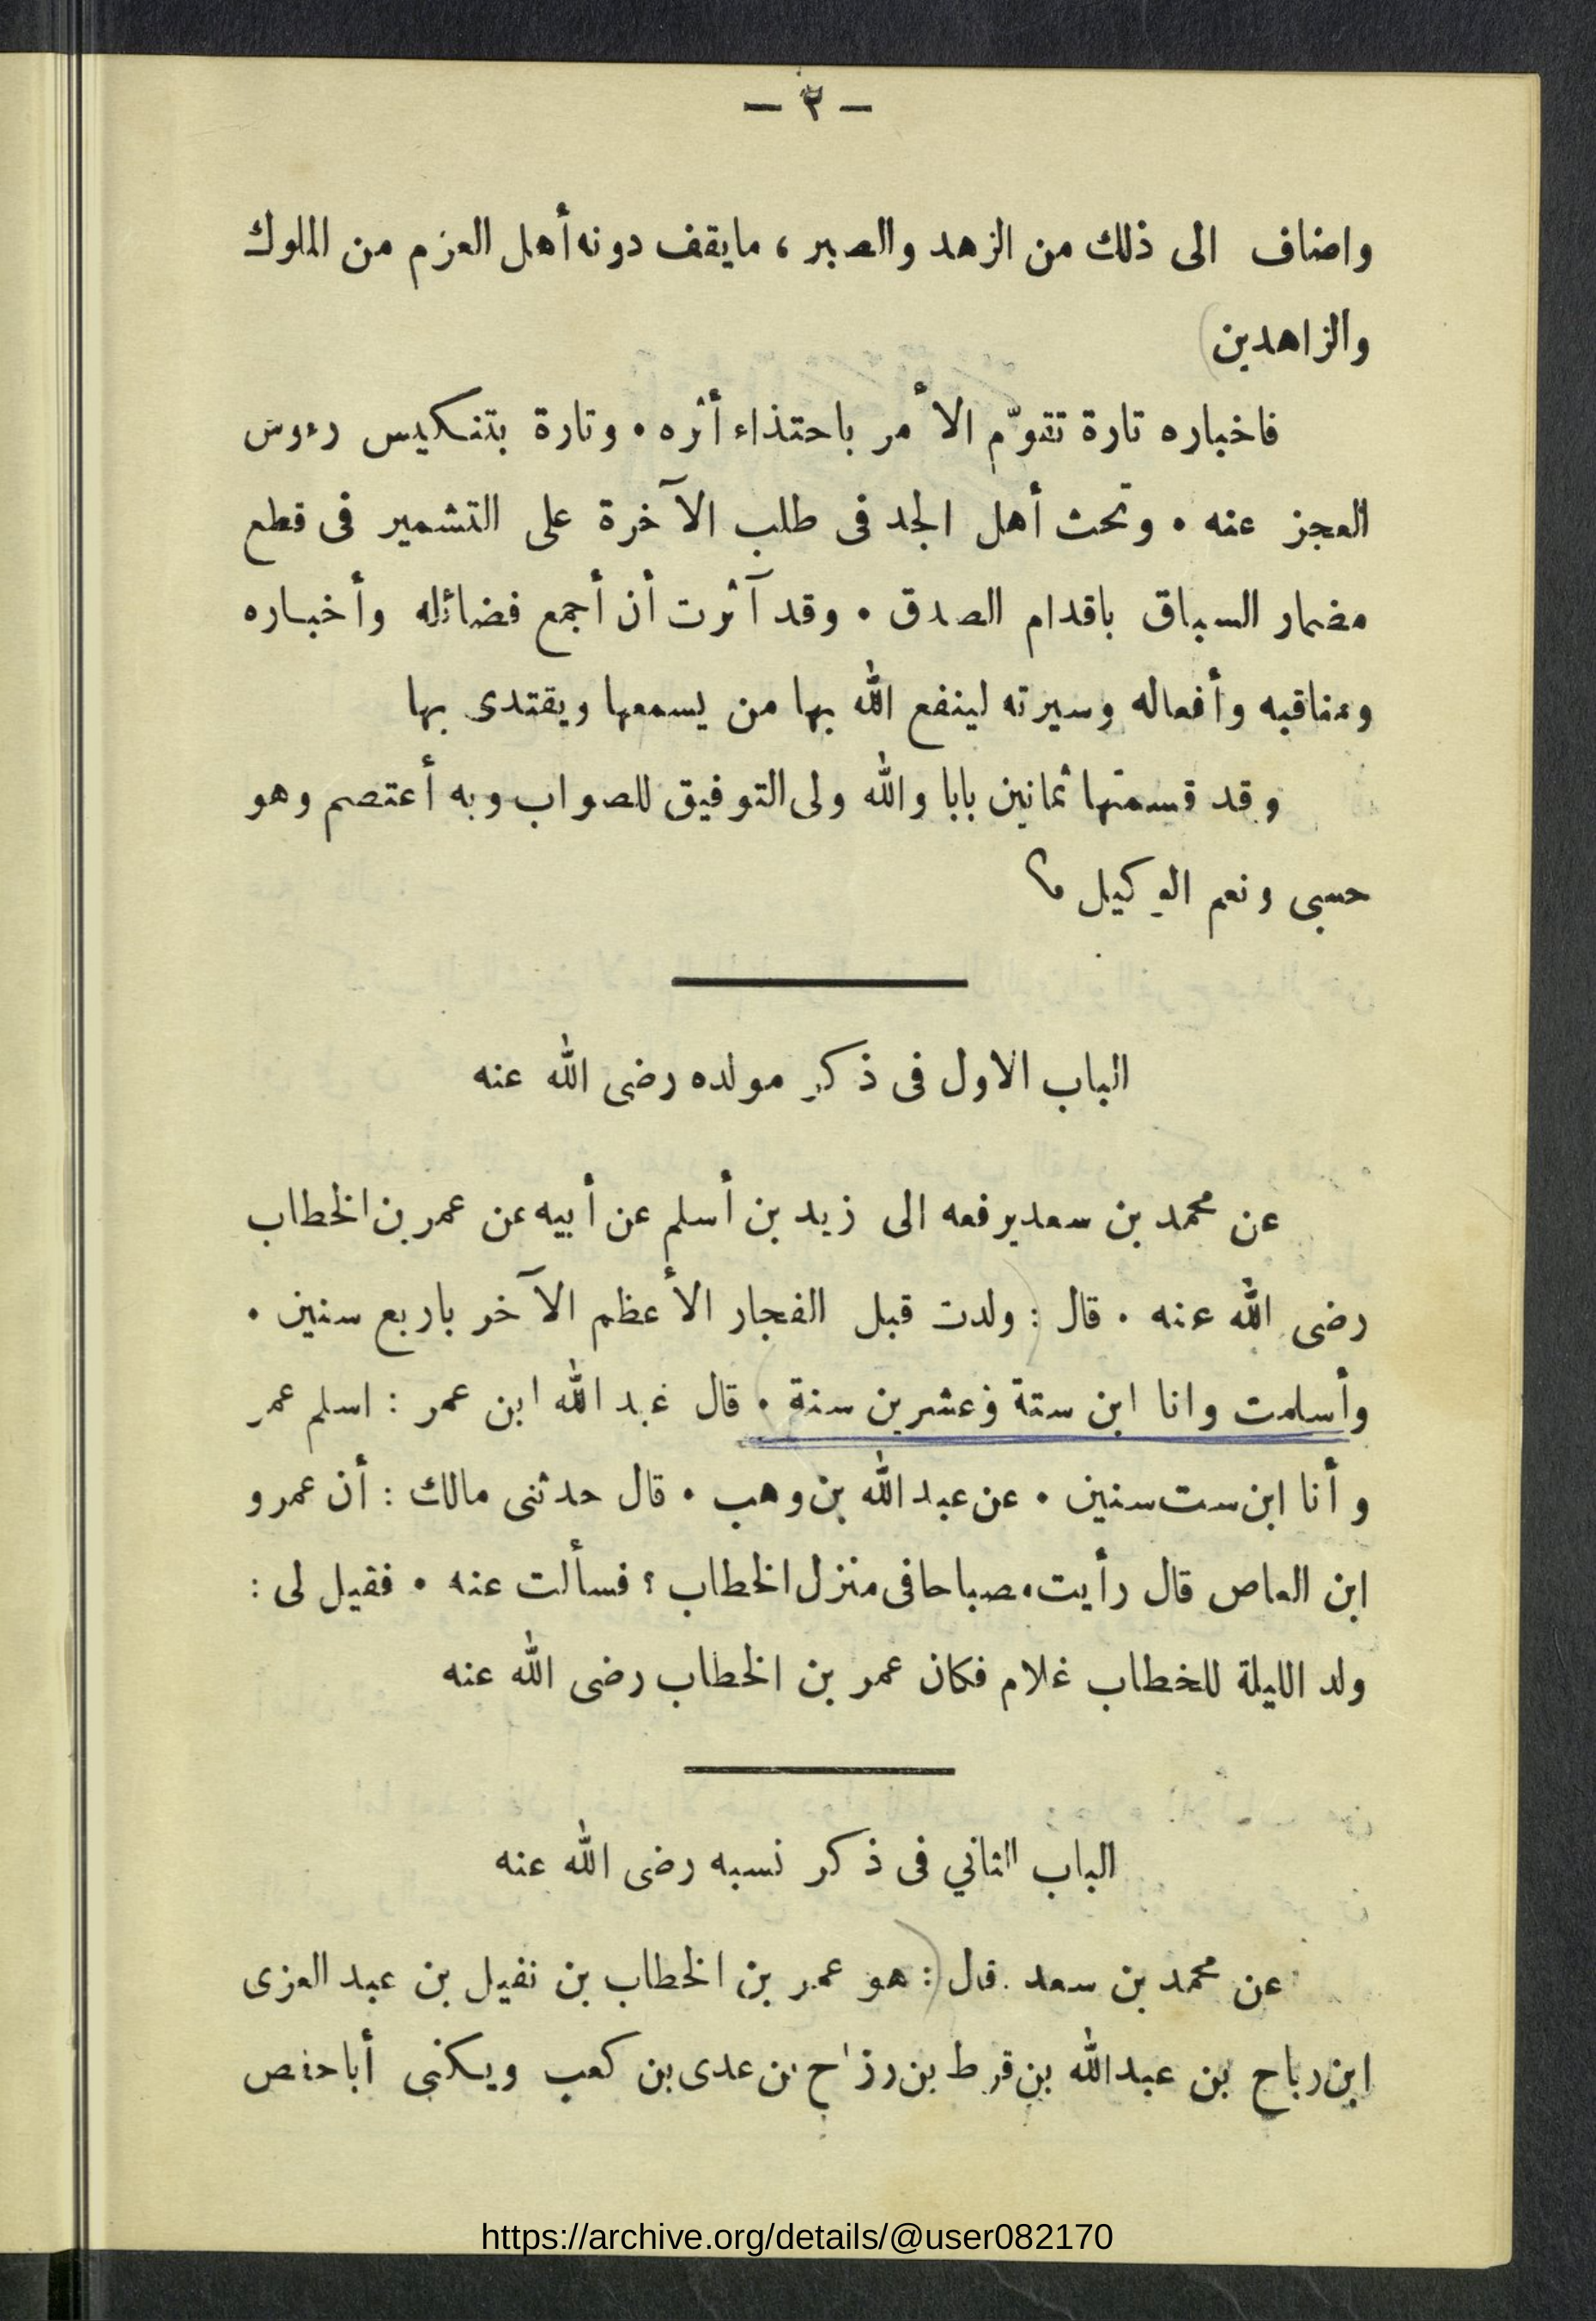 — ٣ —
واضاف الى ذلك من الزهد والصبر ، مايقف دونه أهل العزم من الملوك
والزاهدين)
فاخباره تارة تقوّم الأمر باحتذاء أثره . وتارة بتنكيس رءوس
العجز عنه . وتحث أهل الجد فى طلب الآخرة على التشمير فى قطع
مضمار السباق باقدام الصدق . وقد آثرت أن أجمع فضائله وأخباره
ومناقبه وأفعاله وسيرته لينفع الله بها من يسمعها ويقتدى بها
وقد قسمتها ثمانين بابا والله ولى التوفيق للصواب وبه أعتصم وهو
حسبى ونعم الوكيل
الباب الاول فى ذكر مولده رضى الله عنه
عن محمد بن سعد يرفعه الى زيد بن أسلم عن أبيه عن عمر بن الخطاب
رضى الله عنه . قال : (ولدت قبل الفجار الأعظم الآخر باربع سنين .
وأسلمت وانا ابن ستة وعشرين سنة . قال عبد الله ابن عمر : اسلم عمر
وأنا ابن ست سنين . عن عبد الله بن وهب . قال حدثنى مالك : أن عمرو
ابن العاص قال رأيت مصباحا فى منزل الخطاب ؟ فسألت عنه . فقيل لى :
ولد الليلة للخطاب غلام فكان عمر بن الخطاب رضى الله عنه
الباب الثاني فى ذكر نسبه رضى الله عنه
عن محمد بن سعد . قال : (هو عمر بن الخطاب بن نفيل بن عبد العزى
ابن رباح بن عبد الله بن قرط بن رزاح بن عدى بن كعب ويكنى أبا حفص
https://archive.org/details/@user082170